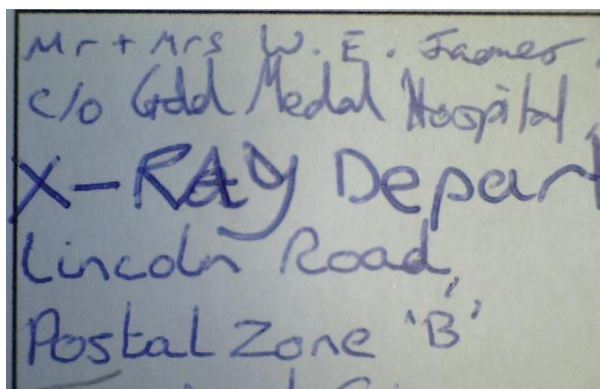 Mr + Mrs W. E. James
c/o Gold Medal Hospital,
X-RAY Depart
Lincoln Road,
Postal Zone 'B'